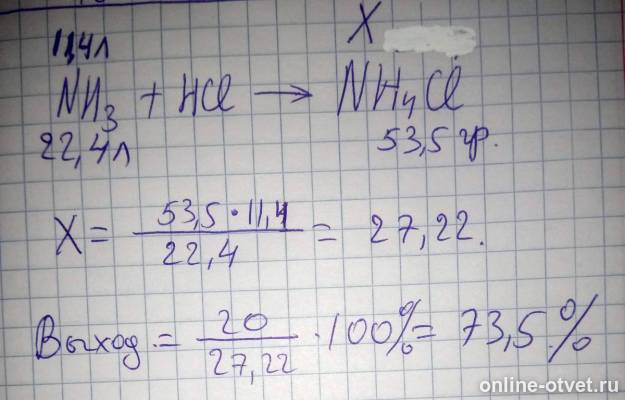 11,4л X
NH3 + HCl → NH4Cl
22,4л 53,5 гр.
X = 53,5·11,4 / 22,4 = 27,22.
Выход = 20 / 27,22 · 100% = 73,5%
online-otvet.ru